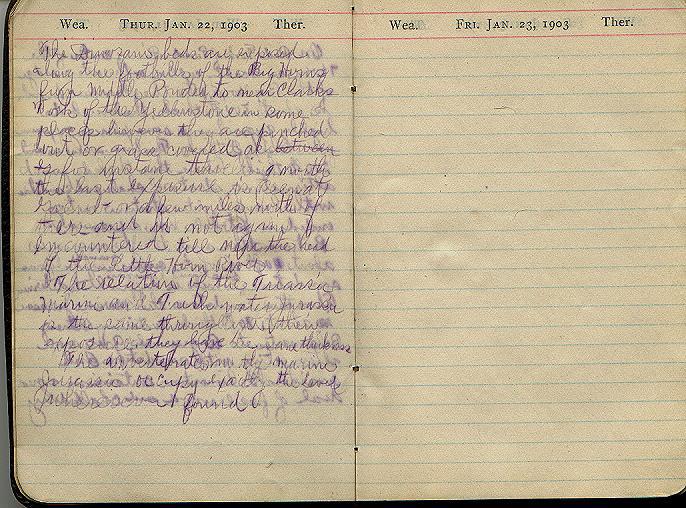 Wea. THUR. JAN. 22, 1903 Ther.
The Dinosaur beds are exposed
along the foothills of the Big Horns
from Middle Powder to near Clarks
Fork of the Yellowstone in some
places however they are pinched
out or grass covered as between
as for instance
the last exposure
a few miles north of
there and is not again
encountered till near the head
of the Little Horn River
The relation of the Triassic
marine and fresh water Jurassic
is the same throughout their
exposure they have the same thickness
The invertebrates in the marine
Jurassic occupy the level
found
Wea. FRI. JAN. 23, 1903 Ther.